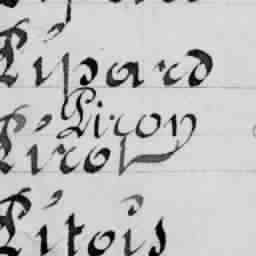 Pipard
Piron
Pirot
Pitois